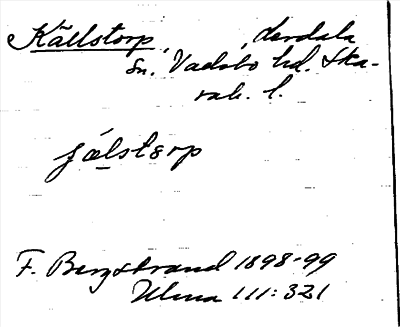 Källstorp, , dardala
Sn. Vadsbo hd. Ska-
rab. l.
fálstorp
F. Bergstrand 1898-99
Ulma 111:321